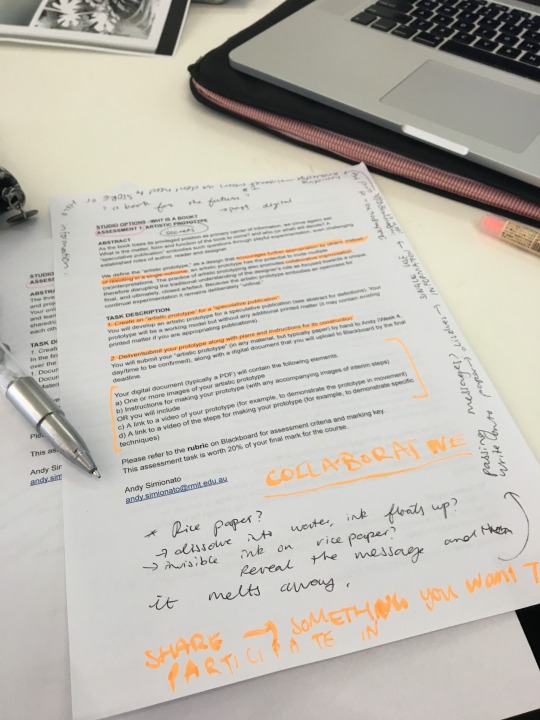 a book for the future?
→ post digital
STUDIO OPTIONS - WHAT IS A BOOK?
ASSESSMENT 1: ARTISTIC PROTOTYPE
ABSTRACT
As the book loses its privileged position as primary carrier of information, we once again ask:
What is the matter, form and function of the book to come? and who (or what) will author it
"speculative publication"
established roles of author, reader and designer.
We define the "artistic prototype," as a design that encourages further appropriation by others instead
of resulting in a single outcome; an artistic prototype has the potential to evoke multiple
(re)interpretations. The practice of artistic prototyping embraces collaborative improvisation,
therefore disrupting the traditional understanding of the designer's role as focused towards a unique,
final, and ultimately, closed artefact. Because the artistic prototype emphasises an openness for
continual experimentation it remains deliberately "unfinal."
TASK DESCRIPTION
1. Create an "artistic prototype" for a "speculative publication"
You will develop an artistic prototype for a speculative publication (see abstract for definitions). Your
prototype will be a working model but without any additional printed matter (it may contain existing
printed matter if you are appropriating publications).
2. Deliver/submit your prototype along with plans and instructions for its construction
You will submit your "artistic prototype" (in any material, but typically paper) by hand to Andy (Week 4,
day/time to be confirmed), along with a digital document that you will upload to Blackboard by the final
deadline.
Your digital document (typically a PDF) will contain the following elements:
a) One or more images of your artistic prototype
b) Instructions for making your prototype (with any accompanying images of interim steps)
OR you will include
c) A link to a video of your prototype (for example, to demonstrate the prototype in movement)
d) A link to a video of the steps for making your prototype (for example, to demonstrate specific
techniques)
Please refer to the rubric on Blackboard for assessment criteria and marking key.
This assessment task is worth 20% of your final mark for the course.
Andy Simionato
andy.simionato@rmit.edu.au
COLLABORATIVE
passing messages?
write onto paper
* Rice paper?
→ dissolve into water, ink floats up?
→ invisible ink on rice paper?
Reveal the message and then
it melts away.
SHARE → SOMETHING YOU WANT T
PARTICIPATE IN
STUDIO
ASSESS
TASK D
Andy Sim
andy.sim